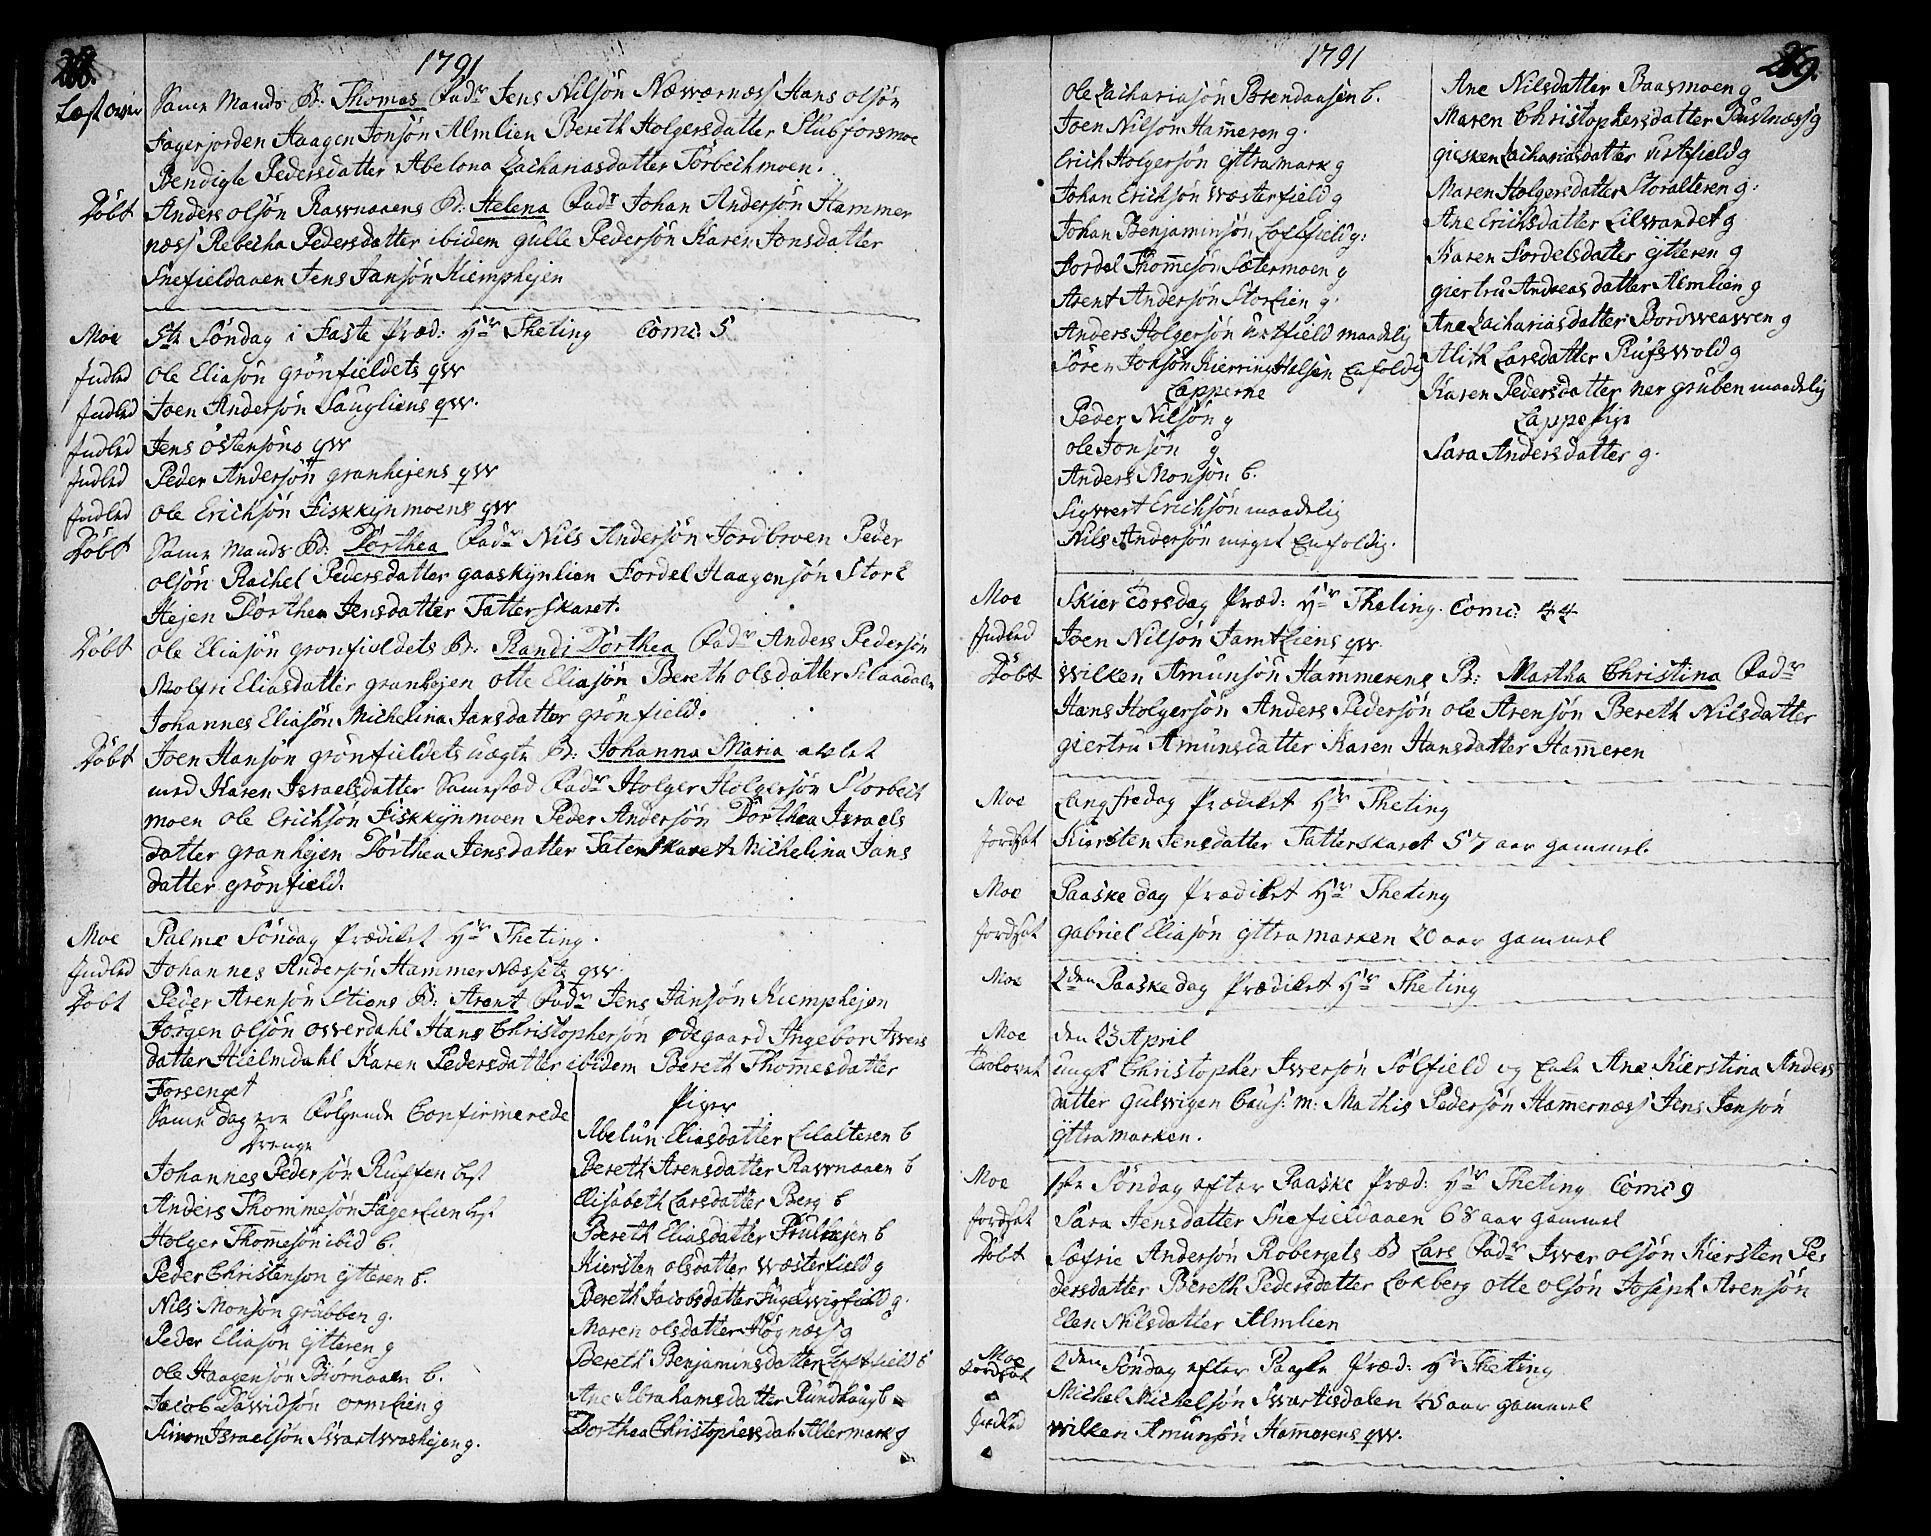 1791
Læst over Samme Mands B: Thomas Fadr Jens Nilsön Næwærnæss Hans olsön
Fagerjorden Haagen Jonsön Almlien Bereth Holgersdatter Stubforsmoe
Bendigte Pedersdatter Abelona Zachariasdatter Törbechmoen.
Döbt Anders olsön Rawnaaens B: Helena Fadr Johan Andersön Hammer
næss Rebecha Pedersdatter ibidem gulle Pedersön Karen Jonsdatter
Snefieldaaen Jens Jansön Kiemphejen
Moe 5te Söndag i Faste Præd: Hr Theting Comc: 5
Indled Ole Eliasön grönfieldets qw
Indled Joen Andersön Saugliens qw.
Indled Jens Östensöns qw
Indled Peder Andersön granhejens qw
Indled Ole Erichsön Fiskkynmoens qw
Döbt Samme Mands B: Dorthea Fadr Nils Andersön Jordbroen Peder
olsön Rachel Pedersdatter gaaskynlien Fordel Haagensön Stor
Hejen Dorthea Jensdatter Tatterskaret.
Döbt ole Eliasön grönfieldets B: Randi Dorthea Fadr Anders Pedersön
Molfri Eliasdatter granhejen otte Eliasön Bereth olsdatter
Johannes Eliasön Michelina Jansdatter grönfield.
Döbt Joen Hansön grönfieldets uægte B: Johanna Maria avlet
med Karen Israelsdatter Sammestæd Fadr Holger Holgersön Storbech
moen ole Erichsön Fiskkynmoen Peder Andersön Dorthea Israels
datter granhejen Dorthea Jensdatter Taterskaret Michelina Jans
datter grönfield.
Moe Palme Söndag Prædiket Hr Theting.
Indled Johannes Andersön HammerNæssets qw.
Döbt Peder Arensön Stiens B: Arent Fadr Jens Jansön Kiemphejen
Jörgen olsön owerdahl Hans Christophersön ødegaard Ingebor Iwers
datter Hielmdahl Karen Pedersdatter ibidem Bereth Thommesdatter
Forsenget
Samme dag ere Fölgende Confirmerede
Drenge
Johannes Pedersön Ruffen best
Anders Thommesön Fagerlien best.
Holger Thommesön ibid b.
Peder Christenson ytteren b.
Nils Monsön grubben g.
Peder Eliasön ytteren g
Ole Haagensön Biörnaaen b.
Jacob Dawidsön ormlien g
Simon Israelsön Swartwashejen g.
Piger
Abelun Eliasdatter Lilalteren b
Bereth Arensdatter Rawnaaen b
Elisabeth Larsdatter Berg b
Bereth Eliasdatter Prulhejen b
Kiersten olsdatter wæsterfield g
Bereth Jacobsdatter Fugelwigfield g.
Maren olsdatter Högnæss g
Bereth Benjaminsdatter Loftfield b
Ane Abrahamsdatter Rundhaug b
Dorthea Christophersdat Aldermark g
1791
269.
Ole Zachariasön Brendaasen b.
Joen Nilsön Hammeren g.
Erich Holgersön yttramark g
Johan Erichsön wæsterfield g
Johan Benjaminsön Loftfield g:
Fordel Thommesön Sætermoen g
Arent Andersön Storlien g.
Anders Holgersön Urtfield maadelig
Sören Jonsön Kierringhalsen Enfoldig
Lapperne
Peder Nilsön g
ole Jonsön g
Anders Monsön b.
Sigwert Erichsön maadelig
Nils Andersön meget Enfoldig.
Ane Nilsdatter Baasmoen g
Maren Christophersdatter Buslnæss g
giesken Zachariasdatter Urtfield g
Maren Holgersdatter Storalteren g:
Ane Erichsdatter Lilwandet g
Karen Fordelsdatter ytteren g
giertru Andreasdatter Almlien g
Ane Zachariasdatter Bordweawen g
Alith Larsdatter Rufswold g
Karen Pedersdatter ner gruben maadelig
Lappe Pige
Sara Andersdatter g.
Moe Skier Torsdag Præd: Hr Theting. Comc: 44
Indled Joen Nilsön Jamtliens qw.
Döbt Wilken Amunsön Hammerens B: Martha Christina Fadr
Hans Holgersön Anders Pedersön ole Arensön Bereth Nilsdatter
giertru Amunsdatter Karen Hansdatter Hammeren
Moe Langfredag Prædiket Hr Theting
Jordsat Kiersten Jensdatter Tatterskaret 57 aar gammel.
Moe Paaske dag Prædiket Hr Theting
Jordsat gabriel Eliasön yttramarken 20 aar gammel
Moe 2den Paaske dag Prædiket Hr Theting
Moe den 23 April
Trolovet ungk Christopher Iwersön Sölfield og Enke Ane Kierstina Anders
datter gulwigen Caus: m: Mathis Pedersön Hammernæss Jens Jensön
yttramarken.
Moe 1ste Söndag efter Paaske Præd: Hr Theting Comc 9
Jordsat Sara Jensdatter Snefieldaaen 68 aar gammel
Döbt Sæfrie Andersön Robergets B Lars Fadr Iwer olsön Kiersten Pe
dersdatter Bereth Pedersdatter Lokberg otte olsön Joseph Arensön
Elen Nilsdatter Almlien
Moe 2den Söndag efter Paaske Præd: Hr Theting
Jordsat Michel Michelsön Swartisdalen 48 aar gammel
Indled Wilken Amunsön Hammerens qw.